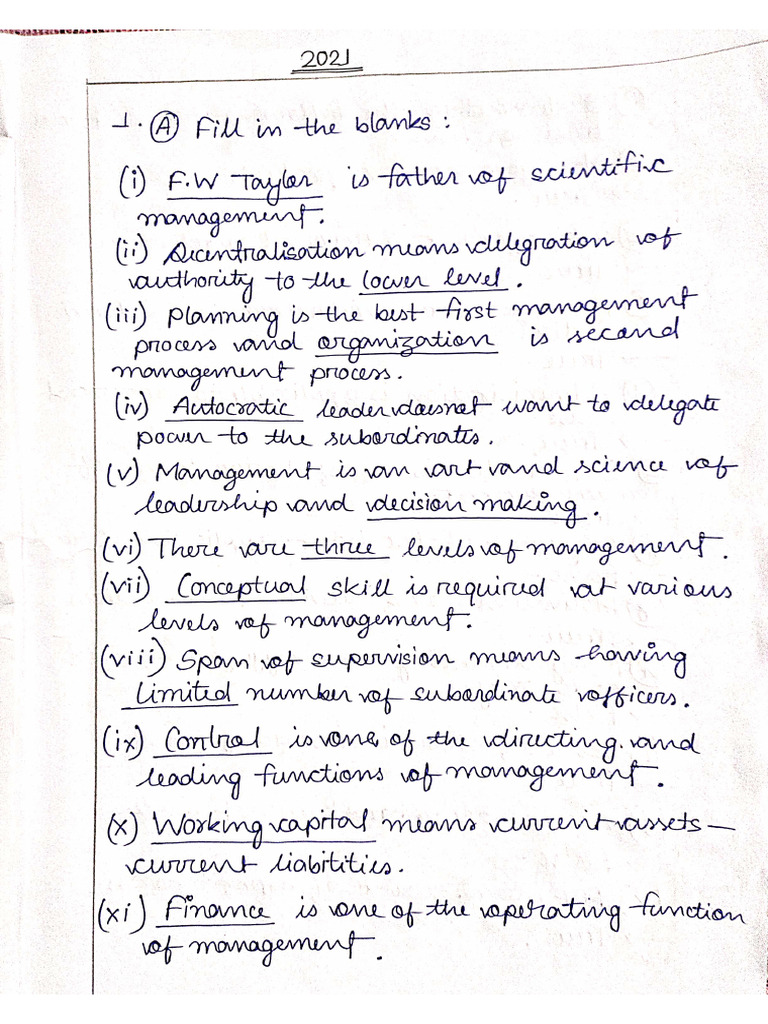 2021
1. (A) Fill in the blanks :
(i) F.W Taylor is father of scientific
management.
(ii) Decentralisation means delegration of
authority to the lower level.
(iii) Planning is the best first management
process and organization is second
management process.
(iv) Autocratic leader doesnot want to delegate
power to the subordinates.
(v) Management is an art and science of
leadership and decision making.
(vi) There are three levels of management.
(vii) Conceptual skill is required at various
levels of management.
(viii) Span of supervision means having
limited number of subordinate officers.
(ix) Control is one of the directing and
leading functions of management.
(x) Working capital means current assets —
current liabitities.
(xi) Finance is one of the operating function
of management.